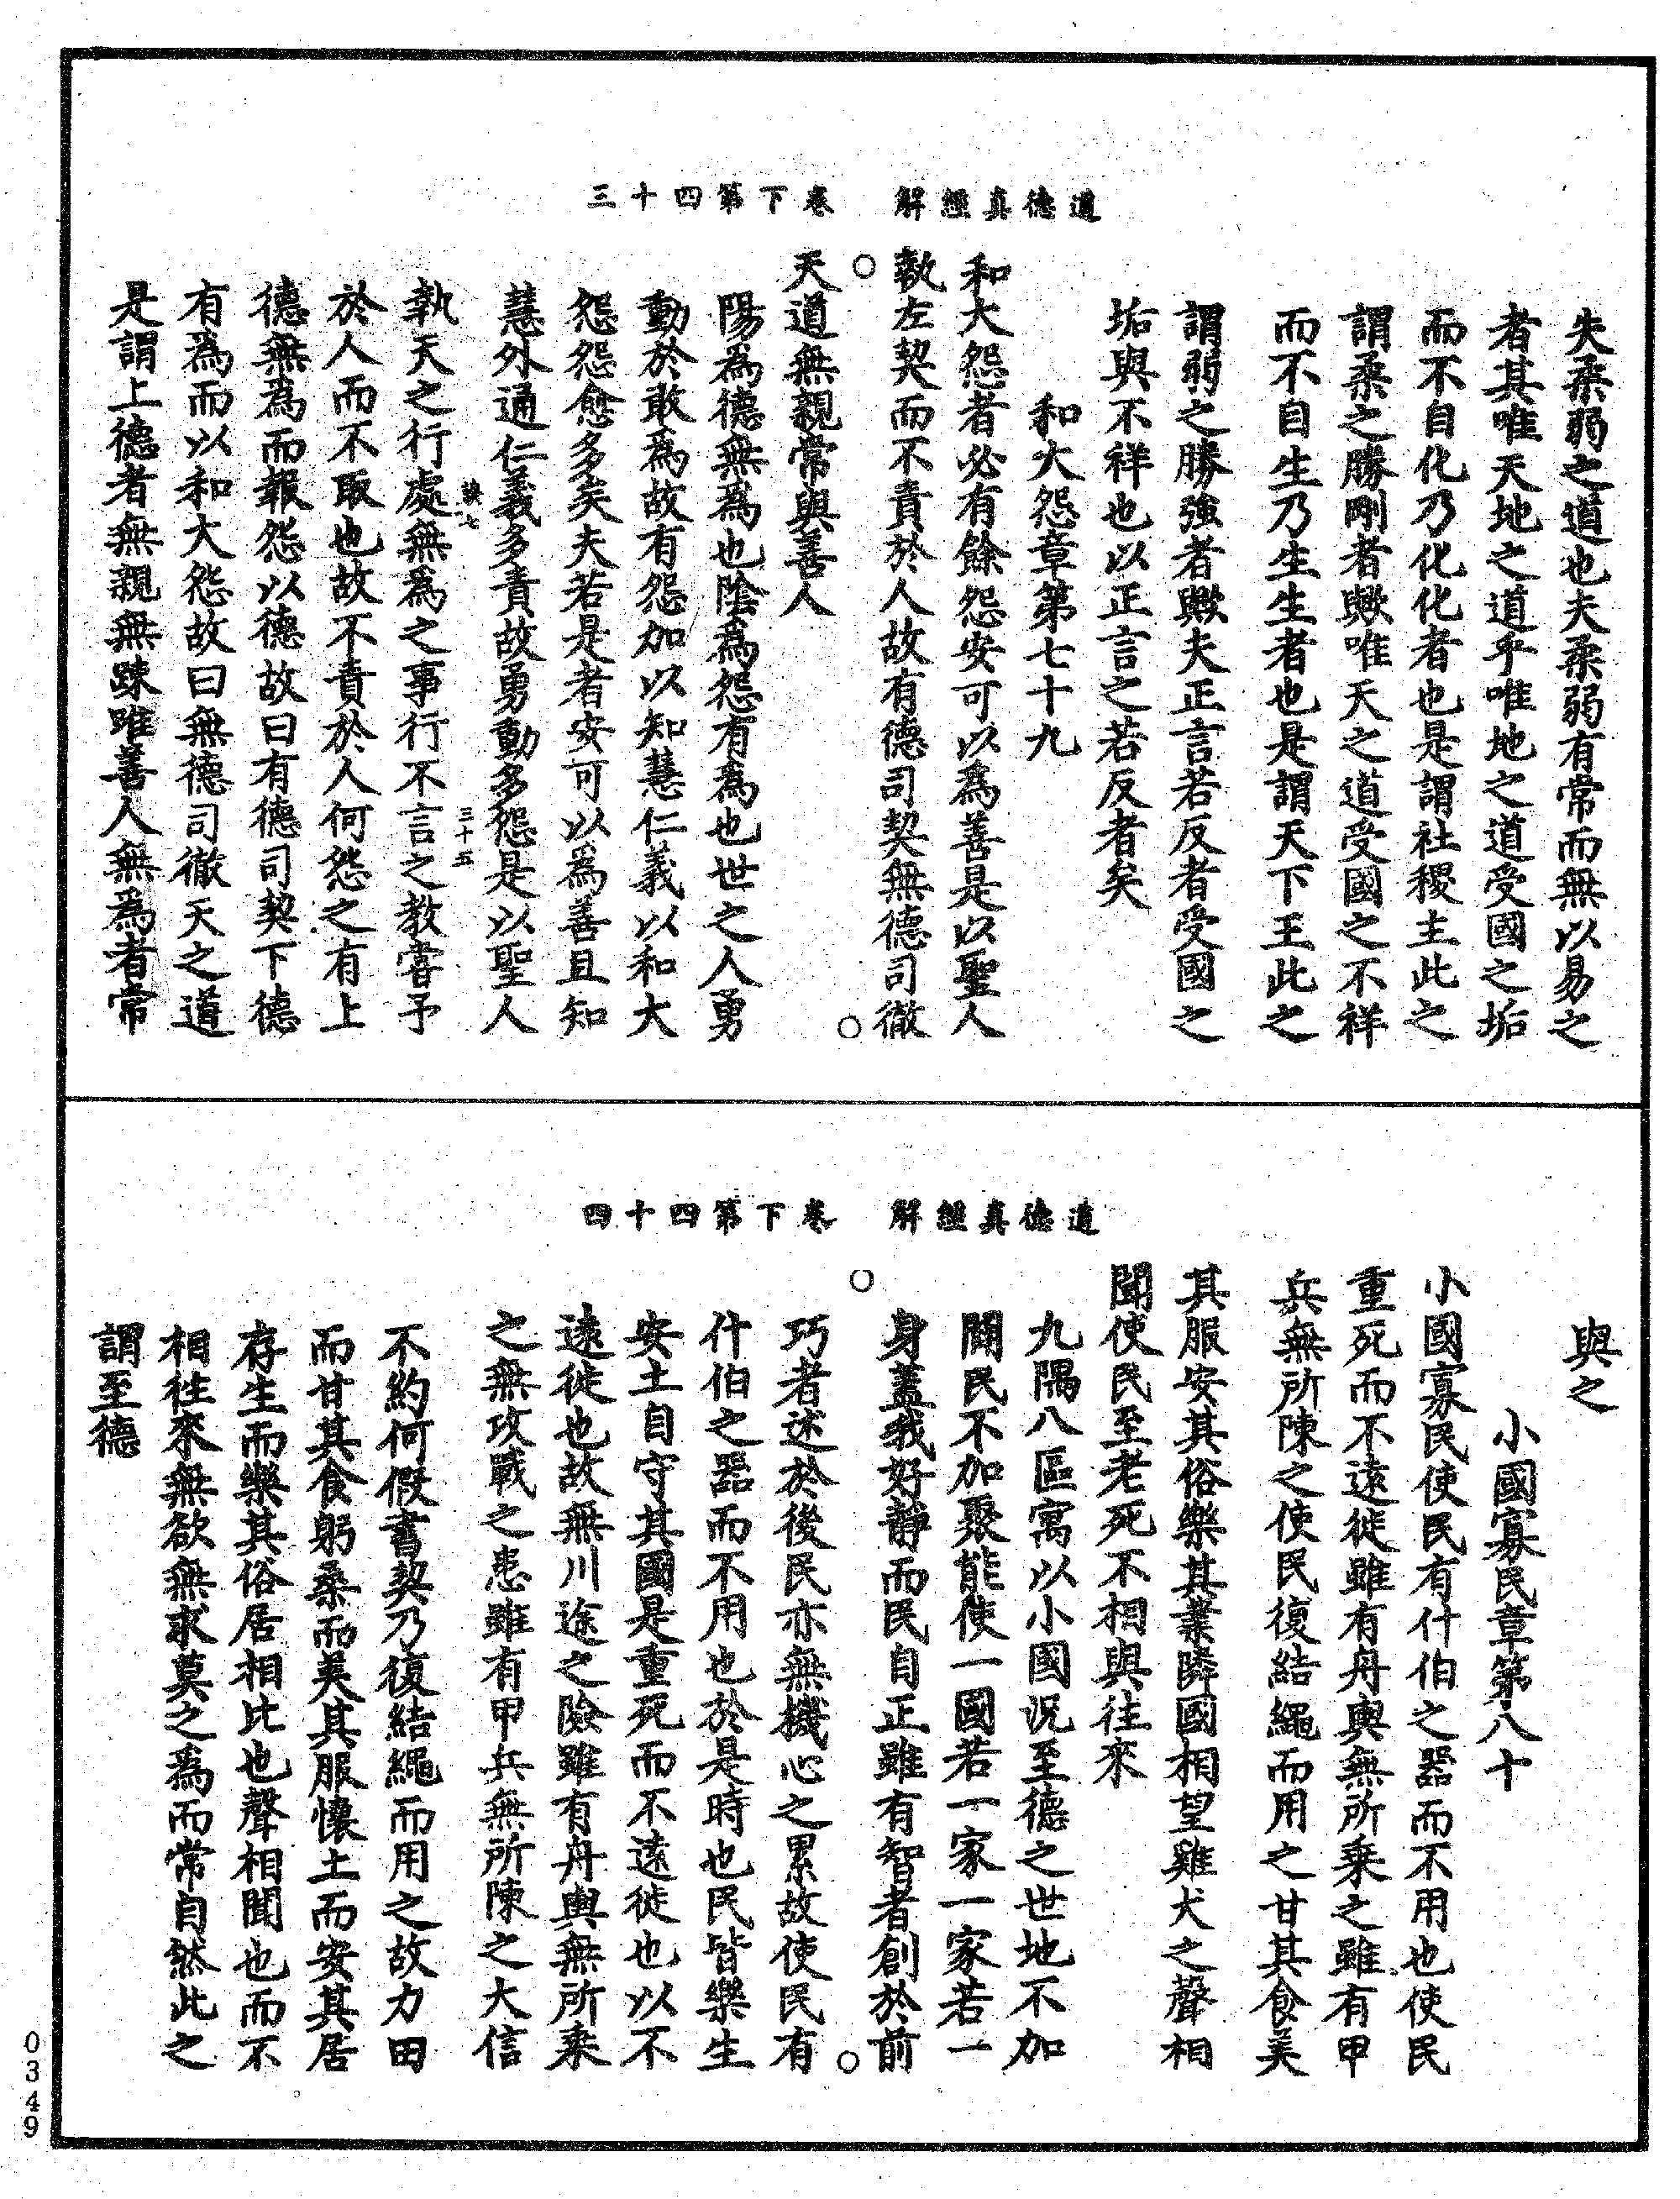 道德真經解　卷下第四十三
失柔弱之道也夫柔弱有常而無以易之
者其唯天地之道乎唯地之道受國之垢
而不自化乃化化者也是謂社稷主此之
謂柔之勝剛者歟唯天之道受國之不祥
而不自生乃生生者也是謂天下王此之
謂弱之勝強者歟夫正言若反者受國之
垢與不祥也以正言之若反者矣
和大怨章第七十九
和大怨者必有餘怨安可以爲善是以聖人
執左契而不責於人故有德司契無德司徹
天道無親常與善人
陽爲德無爲也陰爲怨有爲也世之人勇
動於敢爲故有怨加以知慧仁義以和大
怨怨愈多矣夫若是者安可以爲善且知
慧外通仁義多責故勇動多怨是以聖人
談七　三十五
執天之行處無爲之事行不言之教嘗予
於人而不取也故不責於人何怨之有上
德無爲而報怨以德故曰有德司契下德
有爲而以和大怨故曰無德司徹天之道
是謂上德者無親無踈唯善人無爲者常
道德真經解　卷下第四十四
與之
小國寡民章第八十
小國寡民使民有什伯之器而不用也使民
重死而不遠徙雖有舟輿無所乗之雖有甲
兵無所陳之使民復結繩而用之甘其食美
其服安其俗樂其業隣國相望雞犬之聲相
聞使民至老死不相與往來
九隅八區寓以小國況至德之世地不加
闢民不加聚能使一國若一家一家若一
身蓋我好靜而民自正雖有智者創於前
巧者述於後民亦無機心之累故使民有
什伯之器而不用也於是時也民皆樂生
安土自守其國是重死而不遠徙也以不
遠徙也故無川途之險雖有舟輿無所乗
之無攻戰之患雖有甲兵無所陳之大信
不約何假書契乃復結繩而用之故力田
而甘其食躬桑而美其服懷土而安其居
存生而樂其俗居相比也聲相聞也而不
相往來無欲無求莫之爲而常自然此之
謂至德
0349